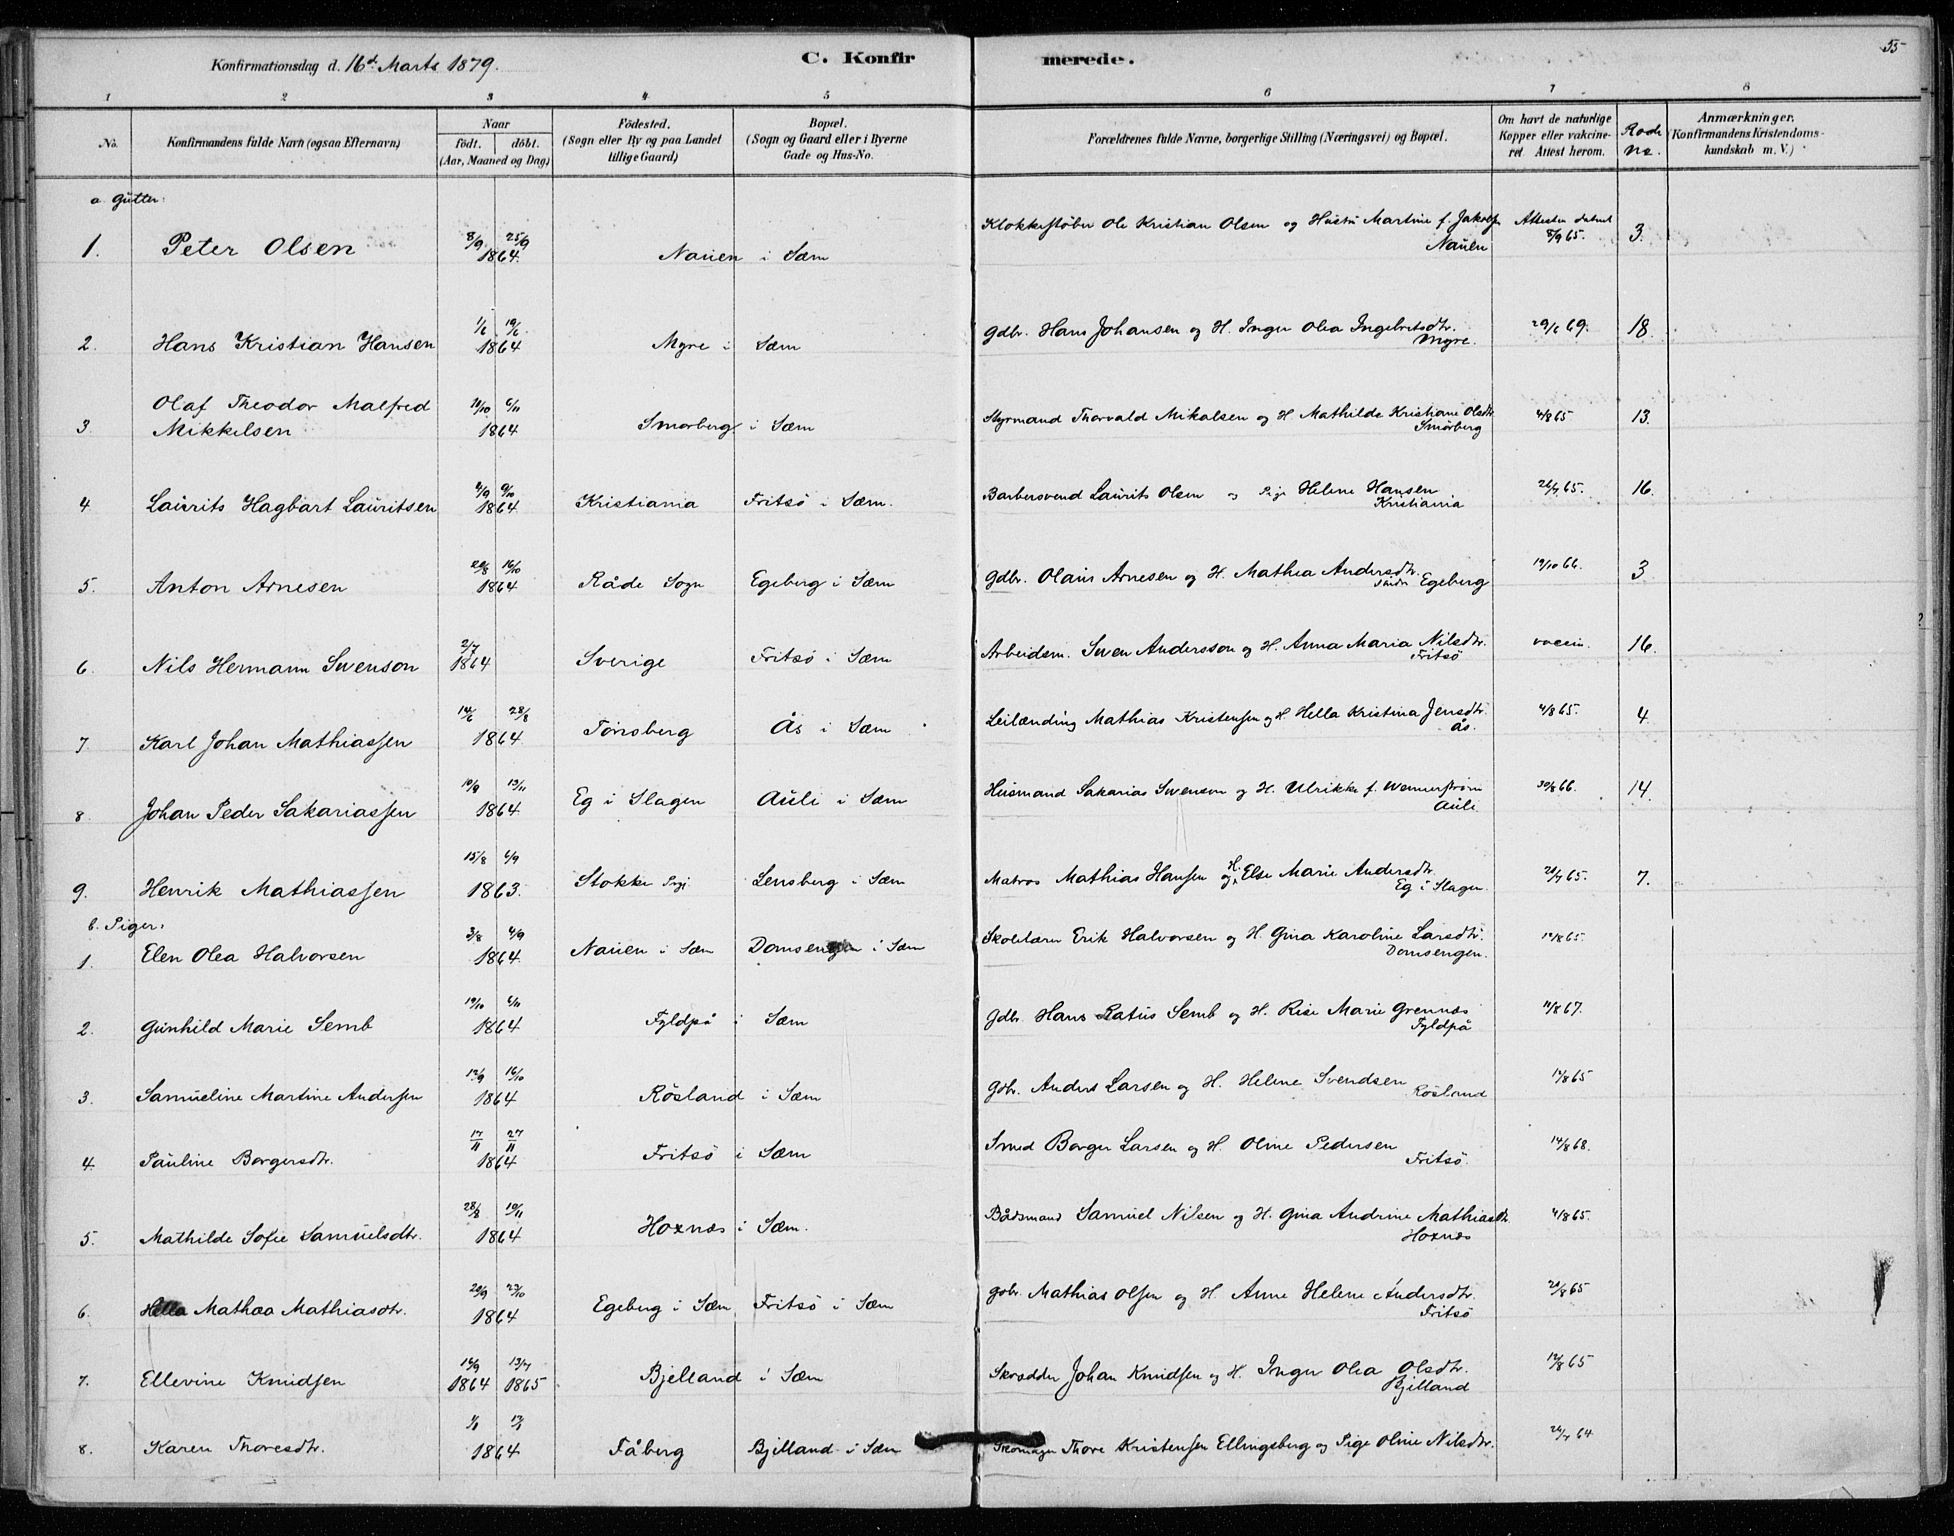 55
Konfirmationsdag d. 16d. Marts 1879.
C. Konfirmerede.
1 2 3 4 5 6 7 8
No. Konfirmandens fulde Navn (ogsaa Efternavn) Naar født. døbt. (Aar, Maaned og Dag) Fødested. (Sogn eller By og paa Landet tillige Gaard) Bopæl. (Sogn og Gaard eller i Byerne Gade og Hus-No. Forældrenes fulde Navne, borgerlige Stilling (Næringsvei) og Bopæl. Om havt de naturlige Kopper eller vakcineret. Attest herom. Rode No. Anmærkninger. Konfirmandens Kristendomskundskab m. V.)
a. Gutter:
1. Peter Olsen 8/9 25/9 1864. Nauen i Sæm Klokkestøber Ole Kristian Olsen og Hustru Martine f. Jakobsen Nauen Attesten dateret 8/9 65. 3.
2. Hans Kristian Hansen 1/6 19/6 1864 Myre i Sæm Gdbr. Hans Johansen og H. Inger Olea Ingebretsdtr. Myre. 29/6 69. 18.
3. Olaf Theodor Malfred Mikkelsen 6/11 1864 Smørberg i Sæm Styrmand Thorvald Mikalsen og H. Mathilde Kristiane Olsdtr. Smørberg 4/8 65 13.
4 Laurits Hagbart Lauritsen 9/10 1864 Kristiania Fritsø i Sæm. Barbersvend Laurits Olsen og Pige Helene Hansen Kristiania 65. 16.
5. Anton Arnesen 16/10 1864 Råde Sogn Egeberg i Sæm Gdbr. Olaus Arnesen og H. Mathea Andersdtr. Søndr Egeberg 19/10 66. 3
6. Nils Hermann Swenson 2/7 1864 Sverige Fritsø i Sæm Arbeidsm. Swen Andersson og H. Anna Maria Nilsdtr. Fritsø vaccin. 16.
7 Karl Johan Mathiassen 14/6 28/8 1864 Tønsberg Ås i Sæm Leilænding Mathias Kristensen og H. Hella Kristina Jensdtr. Ås. 4/8 65. 4.
8 Johan Peder Sakariassen 10/9 13/11 1864. Eg i Slagen Auli i Sæm Husmand Sakarias Swensen og H. Ulrikke f. Wennerstrøm Auli 30/8 66. 14.
9. Henrik Mathiassen 15/8 6/9 1863. Stokke Prgj Lensberg i Sæm Matros Mathias Hansen og H. Else Marie Andersdtr. Eg i Slagen. 65. 7.
b. Piger:
1. Elen Olea Halvorsen 3/8 4/9 1864 Nauen i Sæm Domsengen i Sæm Skolelærer Erik Halvorsen og H. Gina Karoline Larsdtr. Domsengen. 65.
2. Gunhild Marie Semb 19/10 6/11 1864 Fyldpå i Sæm Gdbr. Hans Ratus Semb og H. Rise Marie Grennes Fyldpå 67.
3. Samueline Martine Andersen 12/9 16/10 1864 Røsland i Sæm Gdbr. Anders Larsen og H. Helene Svendsen Røsland 65
4. Pauline Borgersdtr. 17/11 27/11 1864 Fritsø i Sæm Smed Borger Larsen og H. Oline Pedersen Fritsø. 14/8 68.
5. Mathilde Sofie Samuelsdtr. 28/8 1864 Hoxnæs i Sæm. Bådsmand Samuel Nilsen og H. Gina Andrine Mathiasdtr. Hoxnæs 4/8 65.
6. Hella Mathea Mathiasdtr. 1864 Egeberg i Sæm Fritsø i Sæm Gdbr. Mathias Olsen og H. Anne Helene Andersdtr. Fritsø 65
7. Ellevine Knudsen 13/4 1864 1865 Bjelland i Sæm Skrædder Johan Knudsen og H. Inger Olea Olsdtr. Bjelland 65
8. Karen Thoresdtr. 1864 Fåberg Bjelland i Sæm Skomager Thore Kristensen Ellingsberg og Pige Oline Nilsdtr. 64